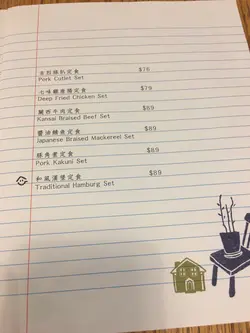 吉列豬扒定食 $76
Pork Cutlet Set
七味雞唐揚定食 $79
Deep Fried Chicken Set
關西牛肉定食 $89
Kansai Braised Beef Set
醬油鯖魚定食 $89
Japanese Braised Mackereel Set
豚角煮定食 $89
Pork Kakuni Set
和風漢堡定食 $89
Traditional Hamburg Set